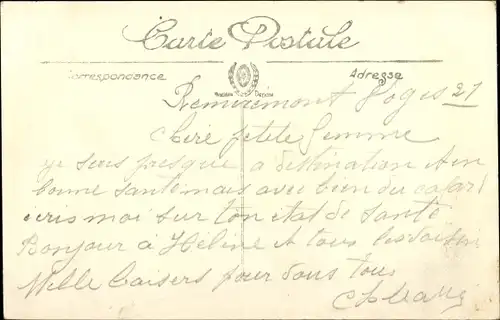 Carte Postale
Correspondance
Adresse
Remiremont Voges 21
chère petite femme
je suis presque a destination et en
bonne santé mais avec bien du cafard
écris moi sur ton état de santé
Bonjour à Hélène et tous les voisins
Mille baisers pour vous tous